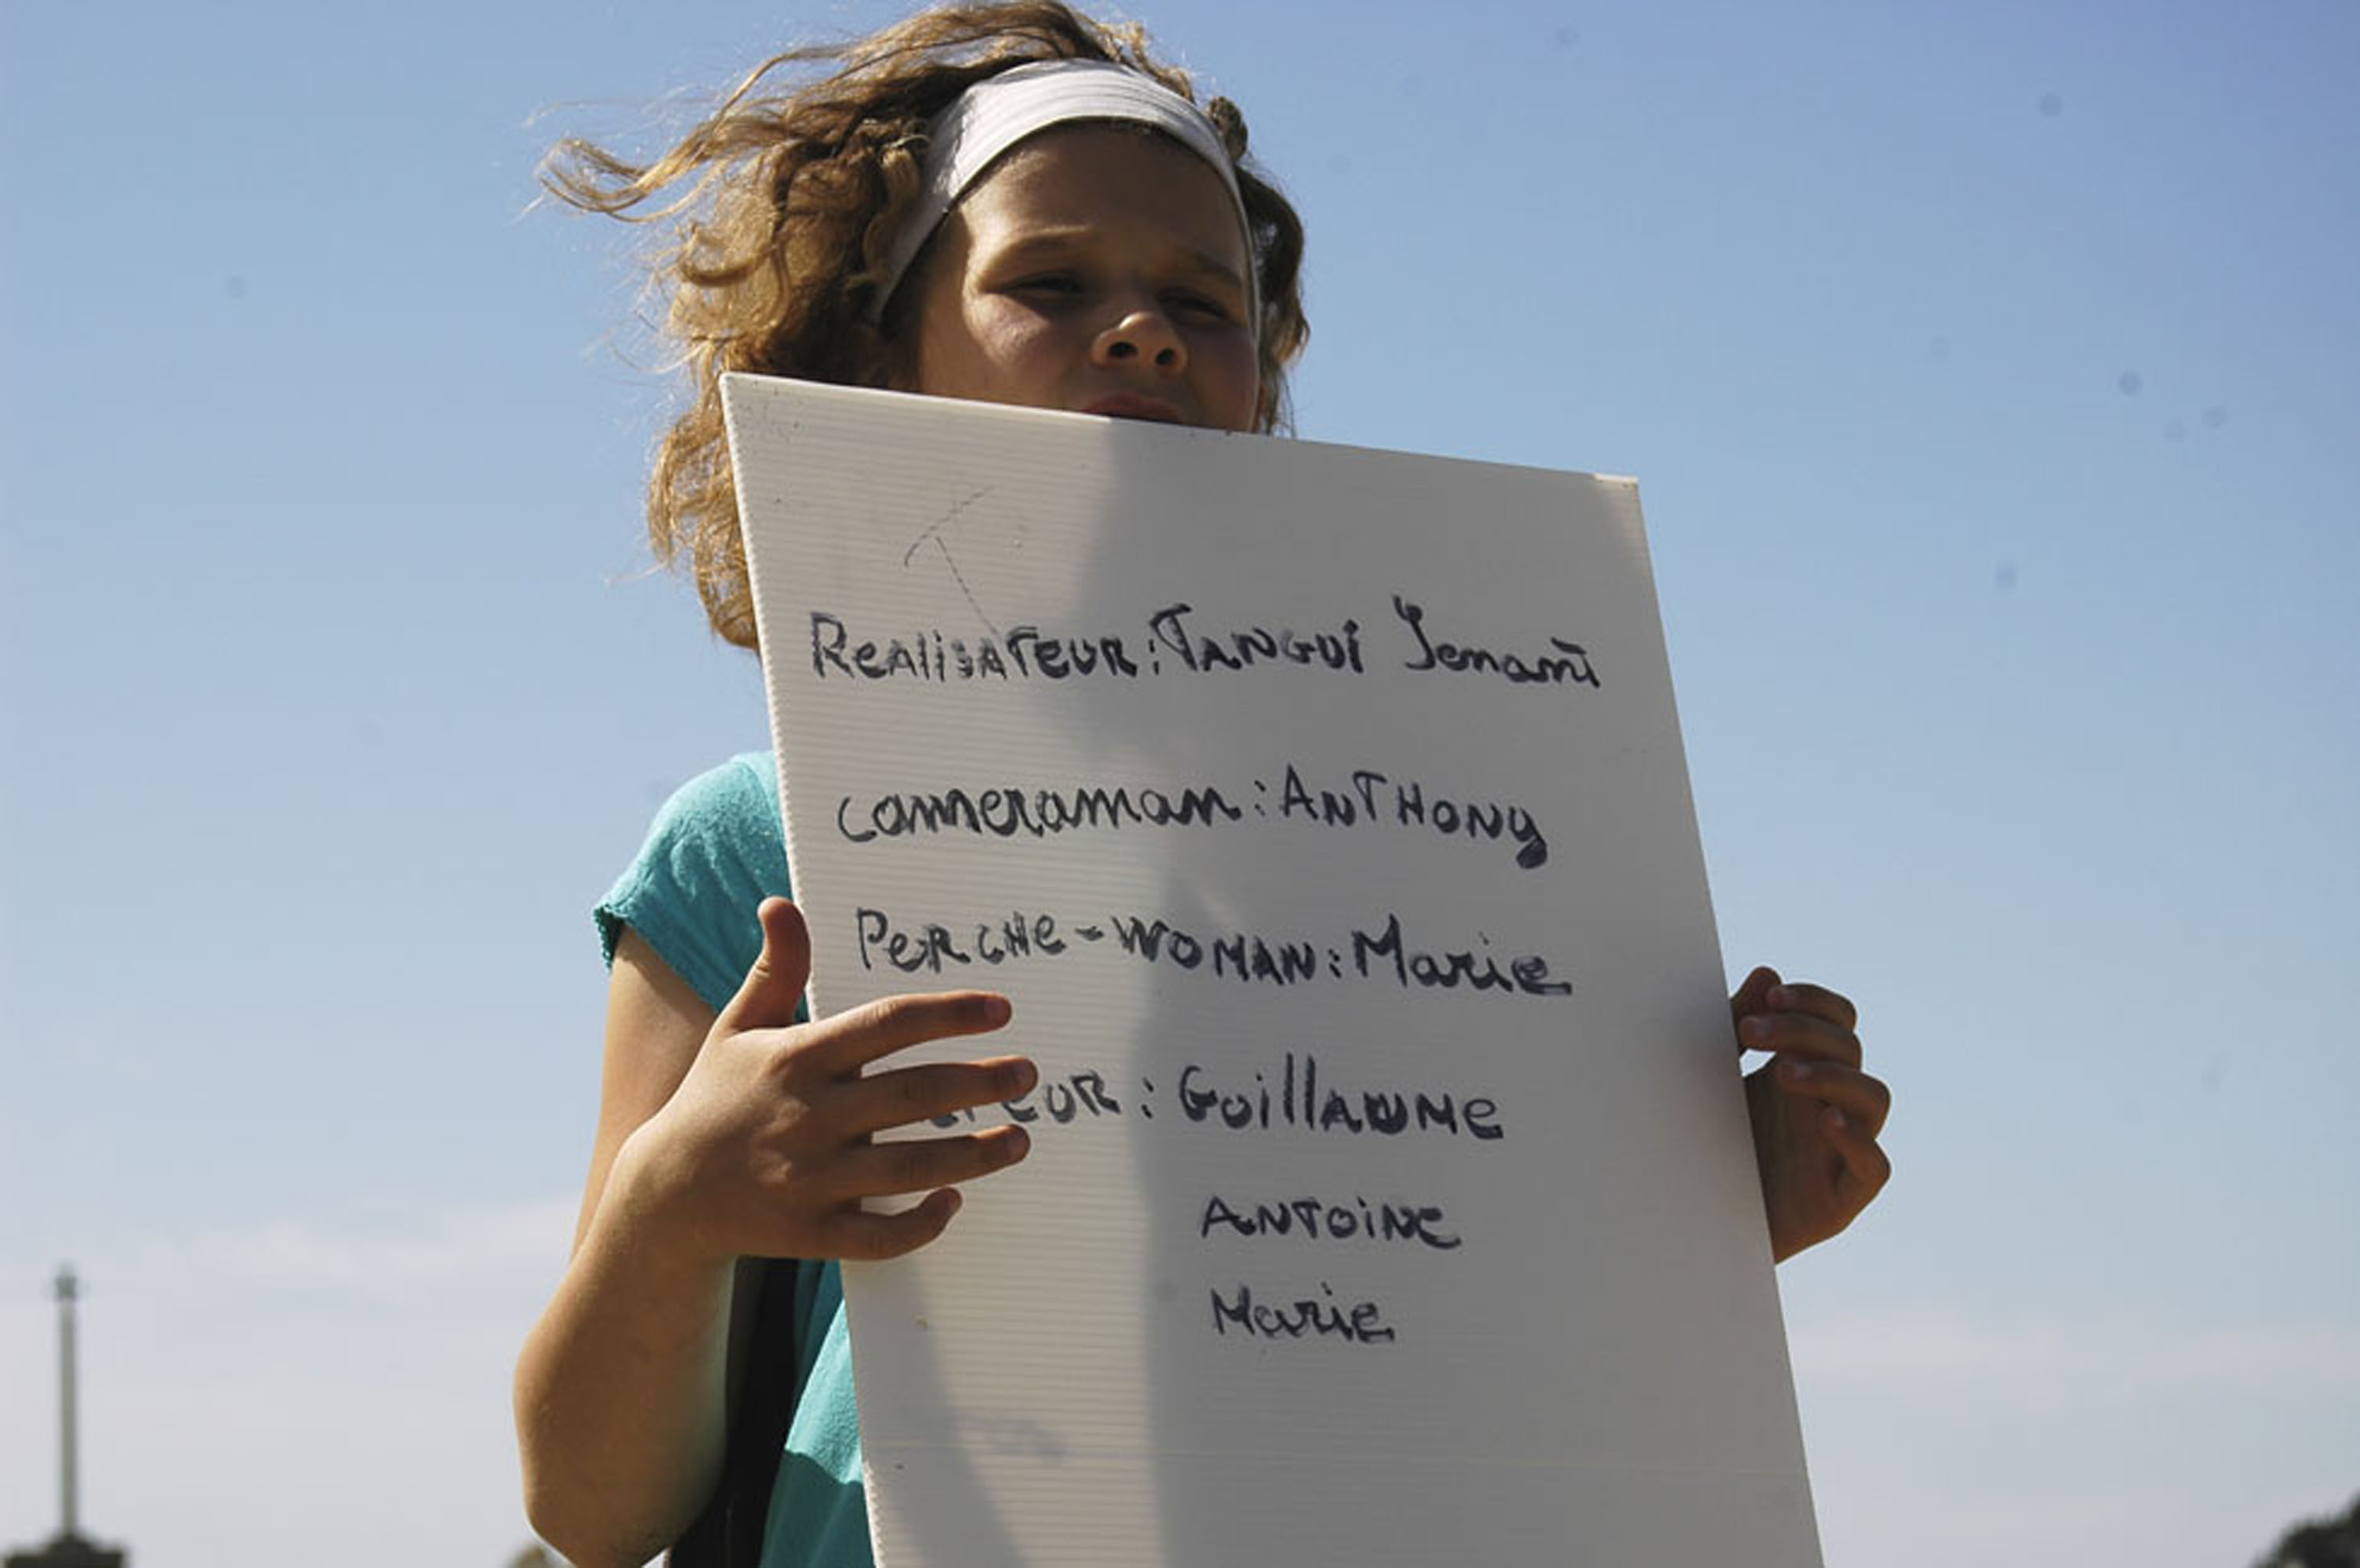 RealisATEUR: TANGUi Jenant
cameraman: ANTHONy
PeRCHe-WOMAN: Marie
: GuillAUMe
ANTOiNe
Marie